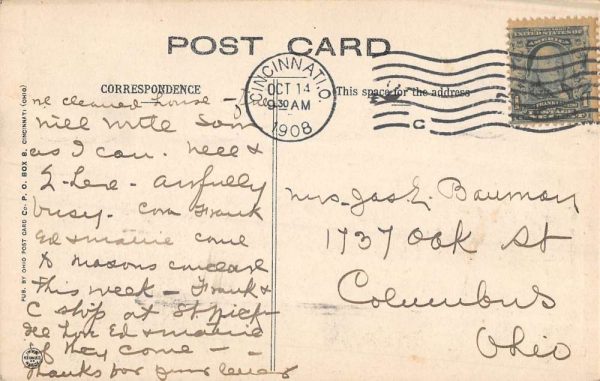 POST CARD
CORRESPONDENCE
This space for the address
CINCINNATI, O.
OCT 14
930 AM
1908
C
UNITED STATES OF AMERICA
PUB. BY OHIO POST CARD CO. P. O. BOX 8. CINCINNATI (OHIO)
we cleaned house -
will write soon
as I can. Nell &
awfully
busy. Frank
Ed & Mamie come
to Masons
this week - Frank &
C stop at
Ed & Mamie
if they come -
Thanks for your letter
Mrs. Jas. E. Bauman
1737 Oak St
Columbus
Ohio